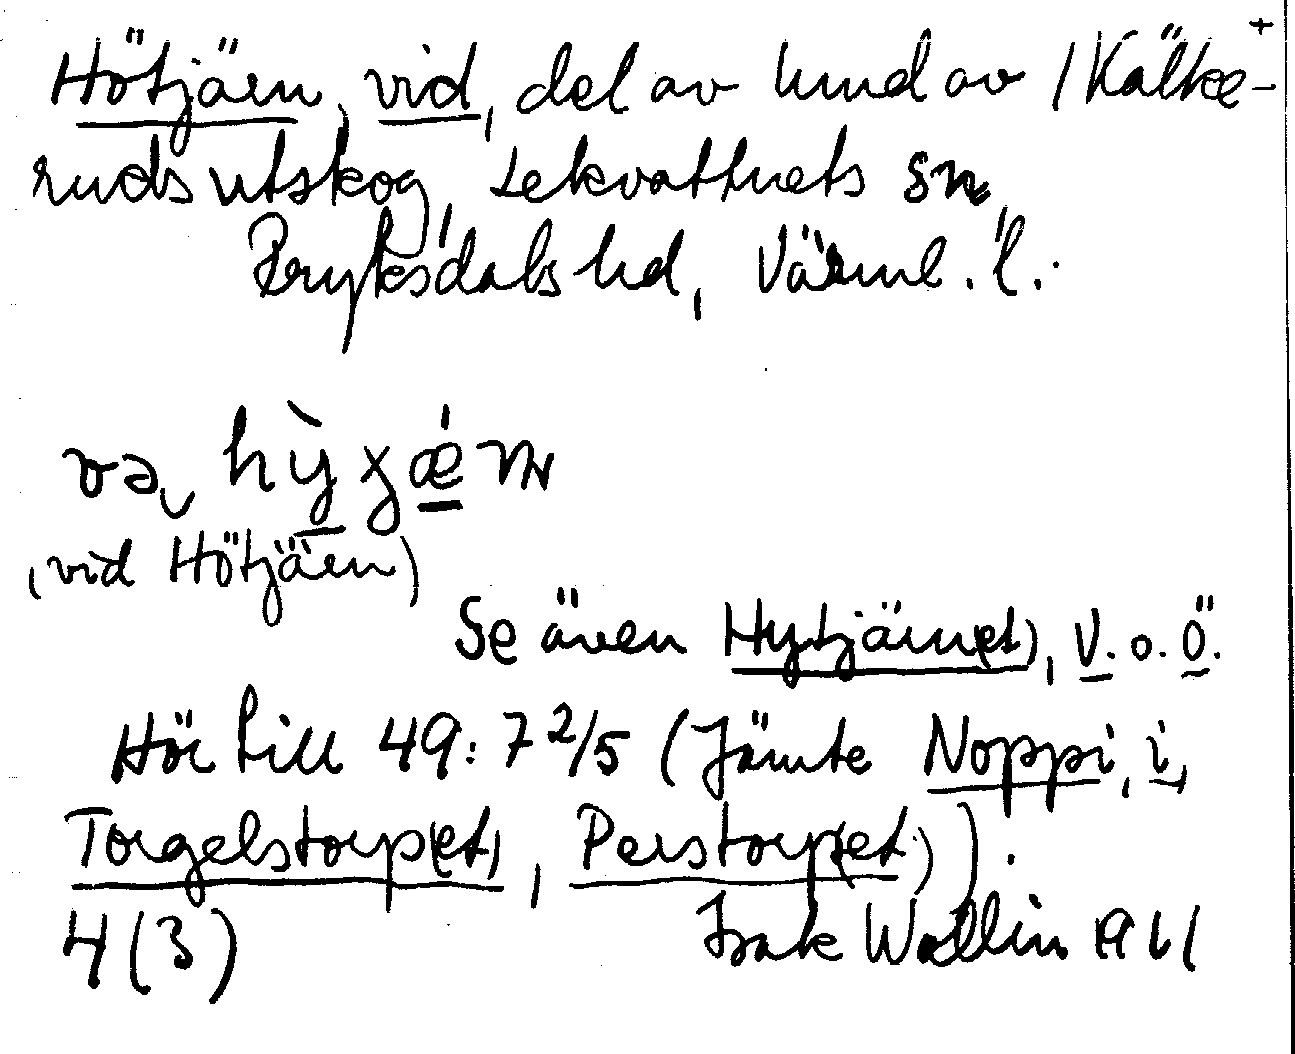 +
Hötjäen, vid, del av hmd av /Kälke-
ruds utskog, Lekvattnets sn
Fryksdals hd, Värml. l.
va hỳχǽṇ
(vid Hötjäen)
Se även Hytjärn(et), V. o. Ö.
Hör till 49:7 2/5 (Jämte Noppi, i,
Torgelstorp(et), Perstorp(et)).
4(3) Isak Wallin 1961